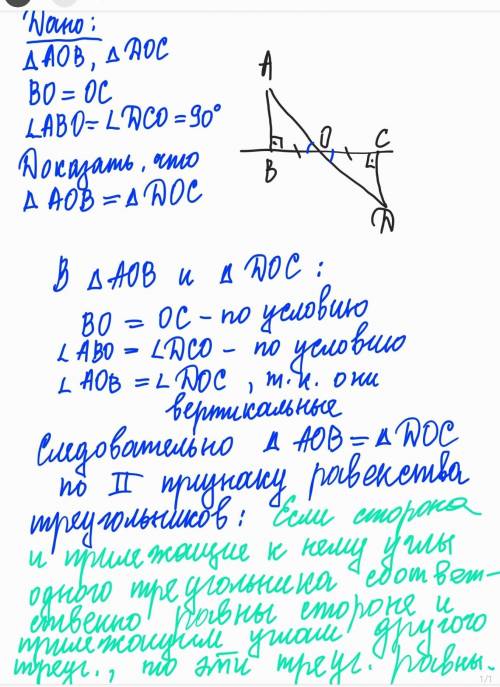 Дано:
Δ AOB, Δ DOC
BO = OC
∠ABO = ∠DCO = 90°
Доказать, что
Δ AOB = Δ DOC
A
B
O
C
D
В Δ AOB и Δ DOC :
BO = OC - по условию
∠ ABO = ∠DCO - по условию
∠ AOB = ∠ DOC , т.к. они
вертикальные
Следовательно Δ AOB = Δ DOC
по II признаку равенства
треугольников: Если сторона
и прилежащие к нему углы
одного треугольника соответ-
ственно равны стороне и
прилежащим углам другого
треуг., то эти треуг. равны.
1/1